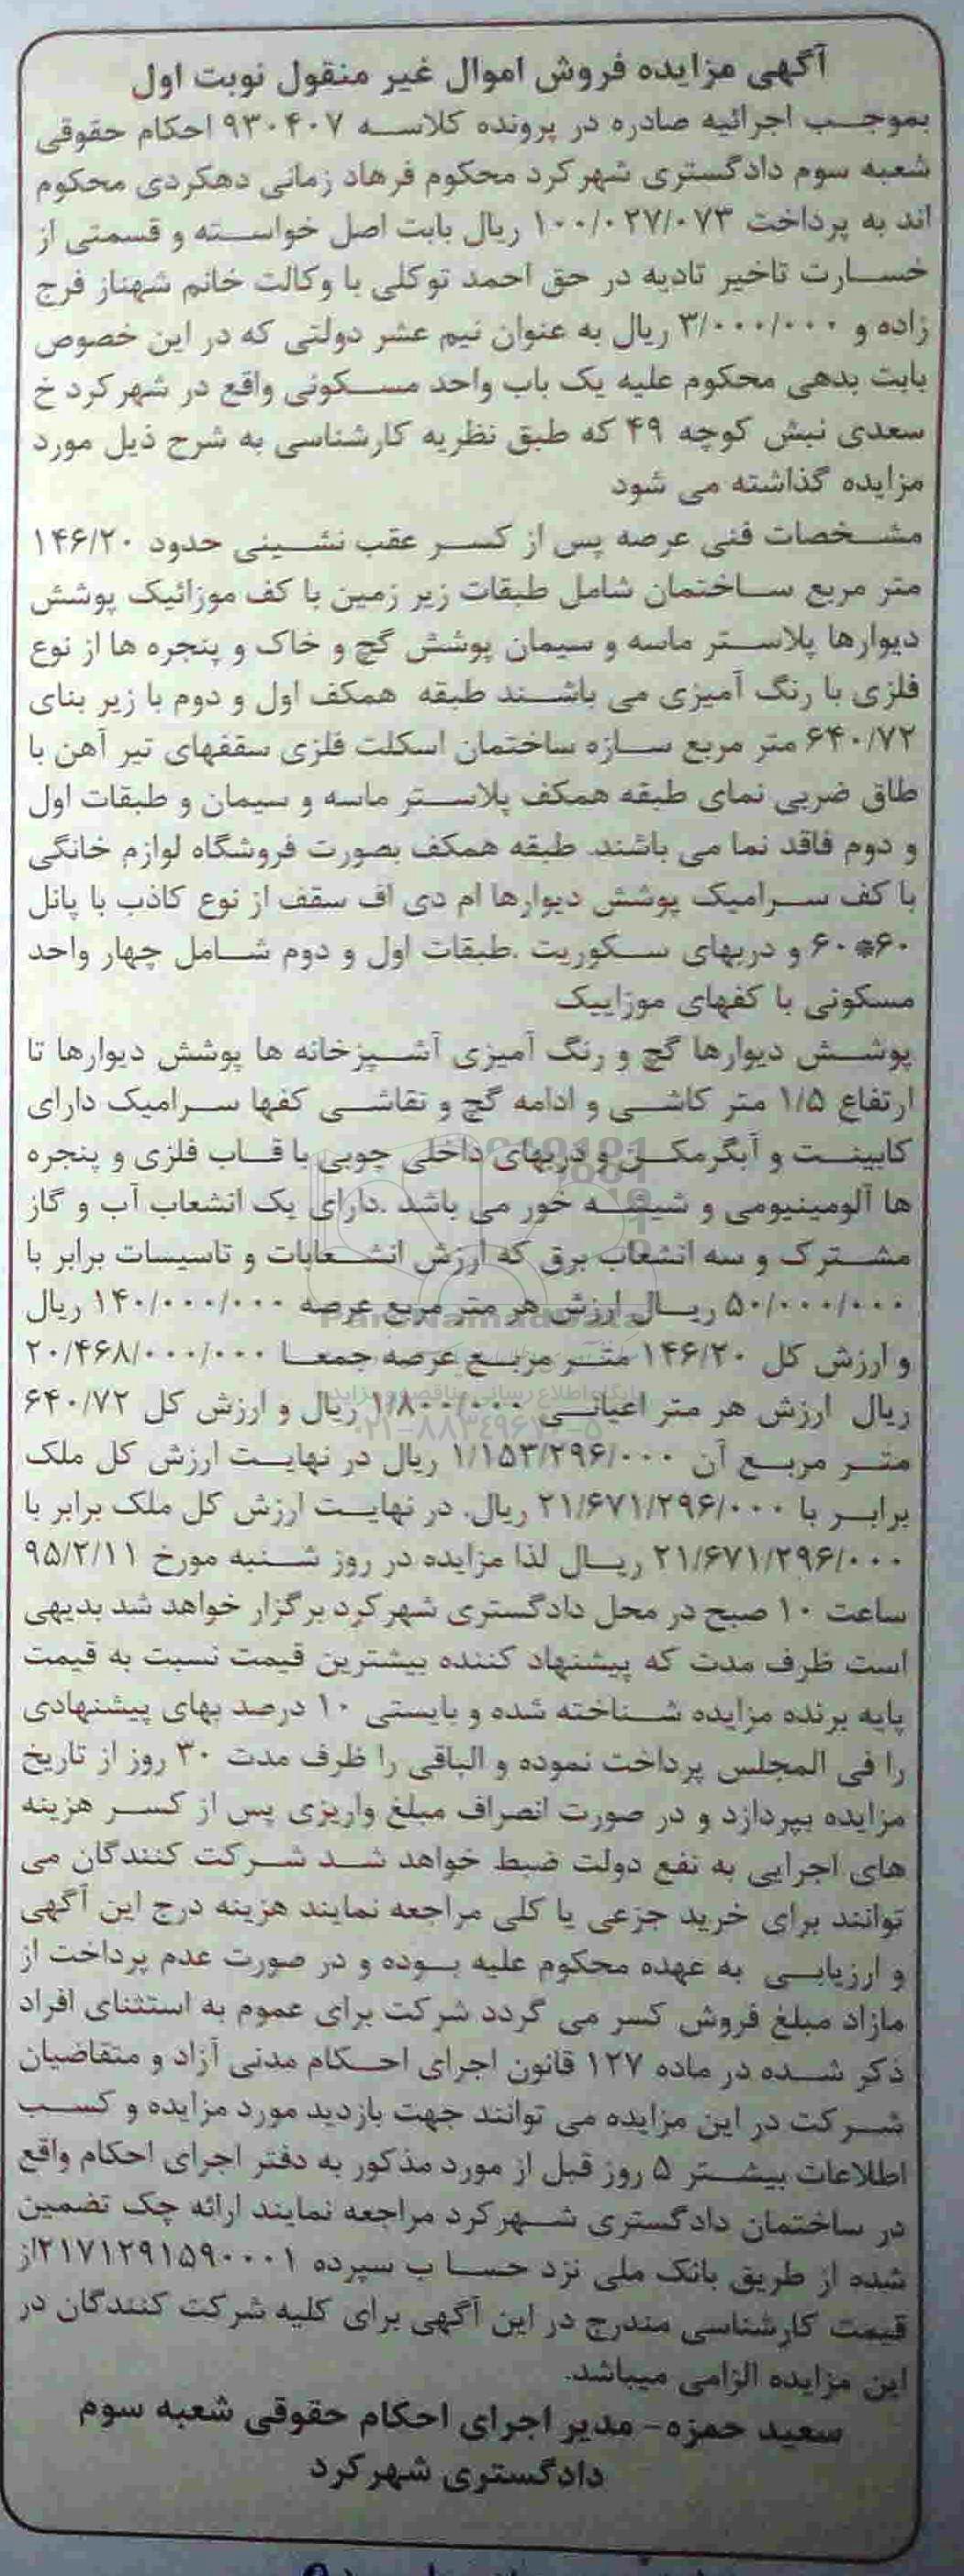 آگهی مزایده فروش اموال غیر منقول نوبت اول
بموجب اجرائیه صادره در پرونده کلاسه ۹۳۰۴۰۷ احکام حقوقی
شعبه سوم دادگستری شهرکرد محکوم فرهاد زمانی دهکردی محکوم
اند به پرداخت ۱۰۰/۰۲۷/۰۷۳ ریال بابت اصل خواسته و قسمتی از
خسارت تاخیر تادیه در حق احمد توکلی با وکالت خانم شهناز فرج
زاده و ۳/۰۰۰/۰۰۰ ریال به عنوان نیم عشر دولتی که در این خصوص
بابت بدهی محکوم علیه یک باب واحد مسکونی واقع در شهرکرد خ
سعدی نبش کوچه ۴۹ که طبق نظریه کارشناسی به شرح ذیل مورد
مزایده گذاشته می شود
مشخصات فنی عرصه پس از کسر عقب نشینی حدود ۱۴۶/۲۰
متر مربع ساختمان شامل طبقات زیر زمین با کف موزائیک پوشش
دیوارها پلاستر ماسه و سیمان پوشش گچ و خاک و پنجره ها از نوع
فلزی با رنگ آمیزی می باشند طبقه همکف اول و دوم با زیر بنای
۶۴۰/۷۲ متر مربع سازه ساختمان اسکلت فلزی سقفهای تیر آهن با
طاق ضربی نمای طبقه همکف پلاستر ماسه و سیمان و طبقات اول
و دوم فاقد نما می باشند. طبقه همکف بصورت فروشگاه لوازم خانگی
با کف سرامیک پوشش دیوارها ام دی اف سقف از نوع کاذب با پانل
۶۰*۶۰ و دربهای سکوریت .طبقات اول و دوم شامل چهار واحد
مسکونی با کفهای موزاییک
پوشش دیوارها گچ و رنگ آمیزی آشپزخانه ها پوشش دیوارها تا
ارتفاع ۱/۵ متر کاشی و ادامه گچ و نقاشی کفها سرامیک دارای
کابینت و آبگرمکن و دربهای داخلی چوبی با قاب فلزی و پنجره
ها آلومینیومی و شیشه خور می باشد .دارای یک انشعاب آب و گاز
مشترک و سه انشعاب برق که ارزش انشعابات و تاسیسات برابر با
۵۰/۰۰۰/۰۰۰ ریال ارزش هر متر مربع عرصه ۱۴۰/۰۰۰/۰۰۰ ریال
و ارزش کل ۱۴۶/۲۰ متر مربع عرصه جمعا ۲۰/۴۶۸/۰۰۰/۰۰۰
ریال ارزش هر متر اعیانی ۱/۸۰۰/۰۰۰ ریال و ارزش کل ۶۴۰/۷۲
متر مربع آن ۱/۱۵۳/۲۹۶/۰۰۰ ریال در نهایت ارزش کل ملک
برابر با ۲۱/۶۷۱/۲۹۶/۰۰۰ ریال. در نهایت ارزش کل ملک برابر با
۲۱/۶۷۱/۲۹۶/۰۰۰ ریال لذا مزایده در روز شنبه مورخ ۹۵/۲/۱۱
ساعت ۱۰ صبح در محل دادگستری شهرکرد برگزار خواهد شد بدیهی
است ظرف مدت که پیشنهاد کننده بیشترین قیمت نسبت به قیمت
پایه برنده مزایده شناخته شده و بایستی ۱۰ درصد بهای پیشنهادی
را فی المجلس پرداخت نموده و الباقی را ظرف مدت ۳۰ روز از تاریخ
مزایده بپردازد و در صورت انصراف مبلغ واریزی پس از کسر هزینه
های اجرایی به نفع دولت ضبط خواهد شد شرکت کنندگان می
توانند برای خرید جزعی یا کلی مراجعه نمایند هزینه درج این آگهی
و ارزیابی به عهده محکوم علیه بوده و در صورت عدم پرداخت از
مازاد مبلغ فروش کسر می گردد شرکت برای عموم به استثنای افراد
ذکر شده در ماده ۱۲۷ قانون اجرای احکام مدنی آزاد و متقاضیان
شرکت در این مزایده می توانند جهت بازدید مورد مزایده و کسب
اطلاعات بیشتر ۵ روز قبل از مورد مذکور به دفتر اجرای احکام واقع
در ساختمان دادگستری شهرکرد مراجعه نمایند ارائه چک تضمین
شده از طریق بانک ملی نزد حساب سپرده ۲۱۷۱۲۹۱۵۹۰۰۰۱از
قیمت کارشناسی مندرج در این آگهی برای کلیه شرکت کنندگان در
این مزایده الزامی میباشد.
سعید حمزه- مدیر اجرای احکام حقوقی شعبه سوم
دادگستری شهرکرد